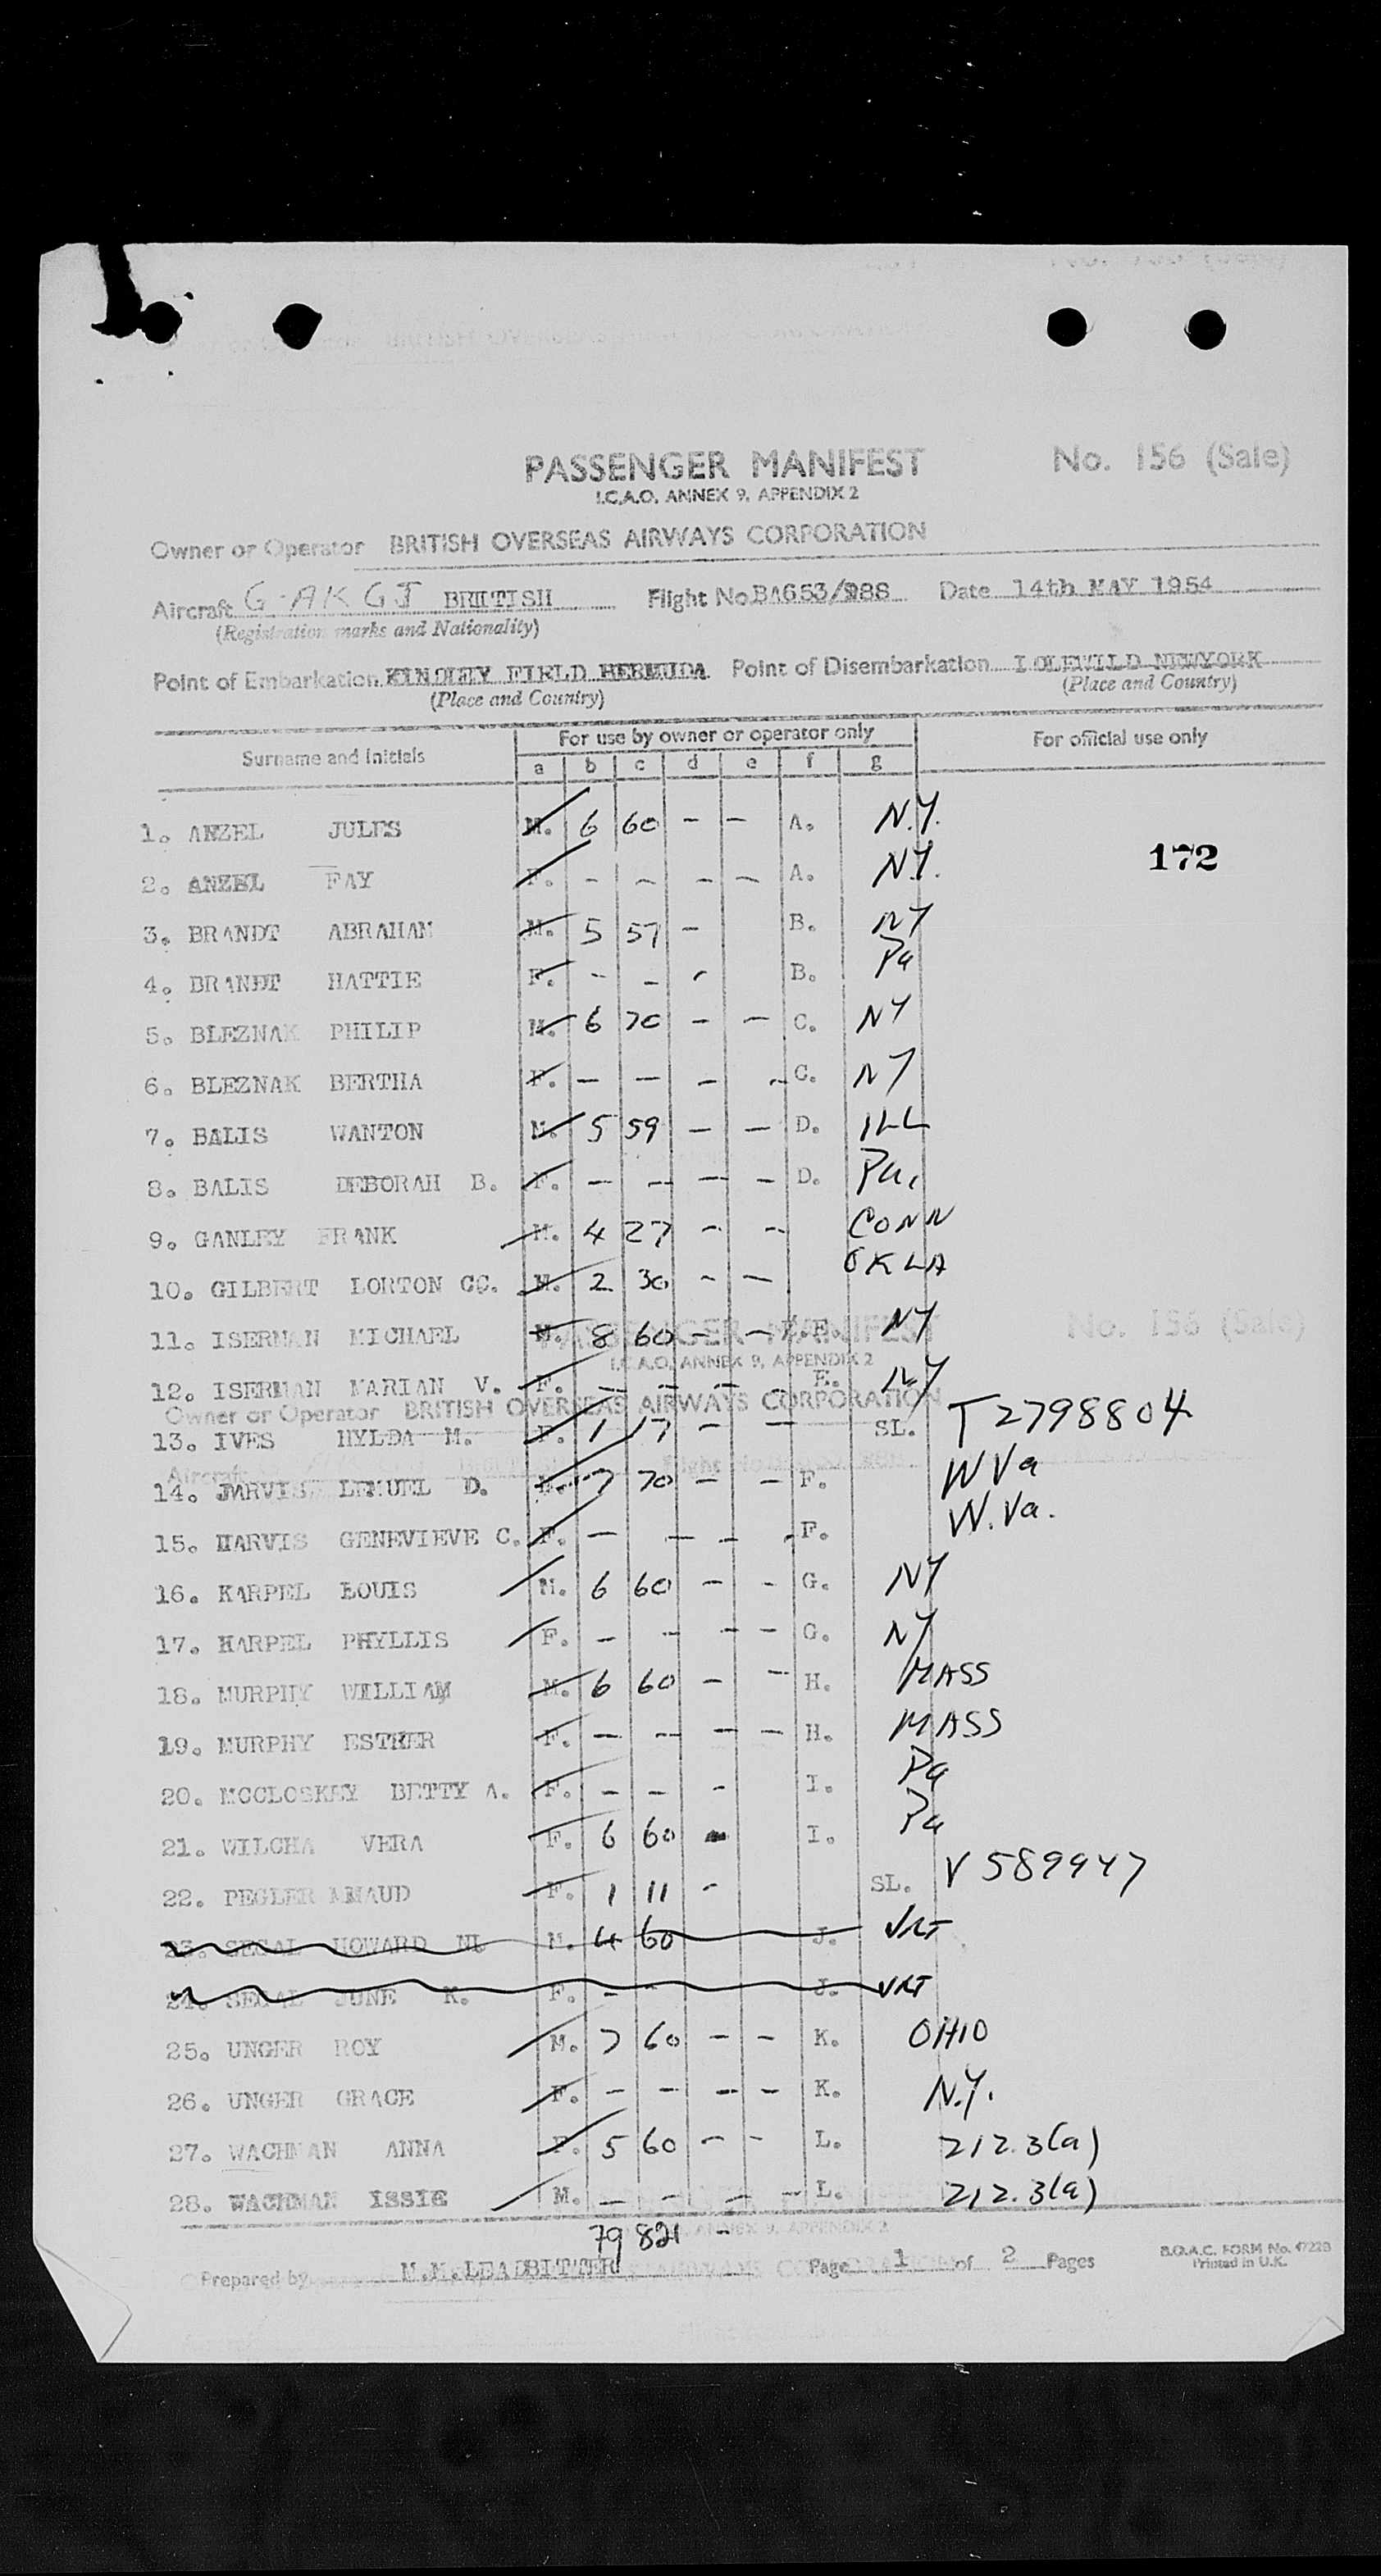 PASSENGER MANIFEST No. 156 (Sale)
I.C.A.O. ANNEX 9, APPENDIX 2
Owner or Operator BRITISH OVERSEAS AIRWAYS CORPORATION
Aircraft G-AKGJ BRITISH Flight No. BA653/988 Date 14th MAY 1954
(Registration marks and Nationality)
Point of Embarkation KINDLEY FIELD BERMUDA Point of Disembarkation IDLEWILD NEWYORK
(Place and Country) (Place and Country)
Surname and Initials For use by owner or operator only For official use only
a b c d e f g
1. ANZEL JULES M. 6 60 - - A. N.Y.
172
2. ANZEL FAY F. - - - - A. N.Y.
3. BRANDT ABRAHAM M. 5 57 - B. NY
4. BRANDT HATTIE F. - - - B. Pa
5. BLEZNAK PHILIP M. 6 70 - - C. NY
6. BLEZNAK BERTHA F. - - - - C. NY
7. BALIS WANTON M. 5 59 - - D. ILL
8. BALIS DEBORAH B. F. - - - - D. Pa.
9. GANLEY FRANK M. 4 27 - - CONN
10. GILBERT LORTON CC. M. 2 30 - - OKLA
11. ISERMAN MICHAEL M. 8 60 - - E. NY
PASSENGER MANIFEST No. 156 (Sale)
I.C.A.O. ANNEX 9, APPENDIX 2
12. ISERMAN MARIAN V. F. - - - - E. NY
Owner or Operator BRITISH OVERSEAS AIRWAYS CORPORATION
13. IVES HYLDA M. F. 1 17 - - SL. T2798804
Aircraft
14. JARVIS LEMUEL D. M. 7 70 - - F. W Va
15. HARVIS GENEVIEVE C. F. - - - - F. W. Va.
16. KARPEL LOUIS M. 6 60 - - G. NY
17. KARPEL PHYLLIS F. - - - - G. NY
18. MURPHY WILLIAM M. 6 60 - - H. MASS
19. MURPHY ESTHER F. - - - - H. MASS
20. MCCLOSKEY BETTY A. F. - - - I. Pa
21. WILCHA VERA F. 6 60 - I. Pa
22. PEGLER MAUD F. 1 11 - SL. V 589947
23. SEGAL HOWARD M. 4 60 J.
24. SEGAL JUNE K. F. - - J.
25. UNGER ROY M. 7 60 - - K. OHIO
26. UNGER GRACE F. - - - - K. N.Y.
27. WACHMAN ANNA F. 5 60 - - L. 212.3(a)
28. WACHMAN ISSIE M. - - - - L. 212.3(a)
79 821 -
ANNEX 9, APPENDIX 2
Prepared by M.M.LEADBITTER Page 1 of 2 Pages
B.O.A.C. FORM No. 4722B
Printed in U.K.